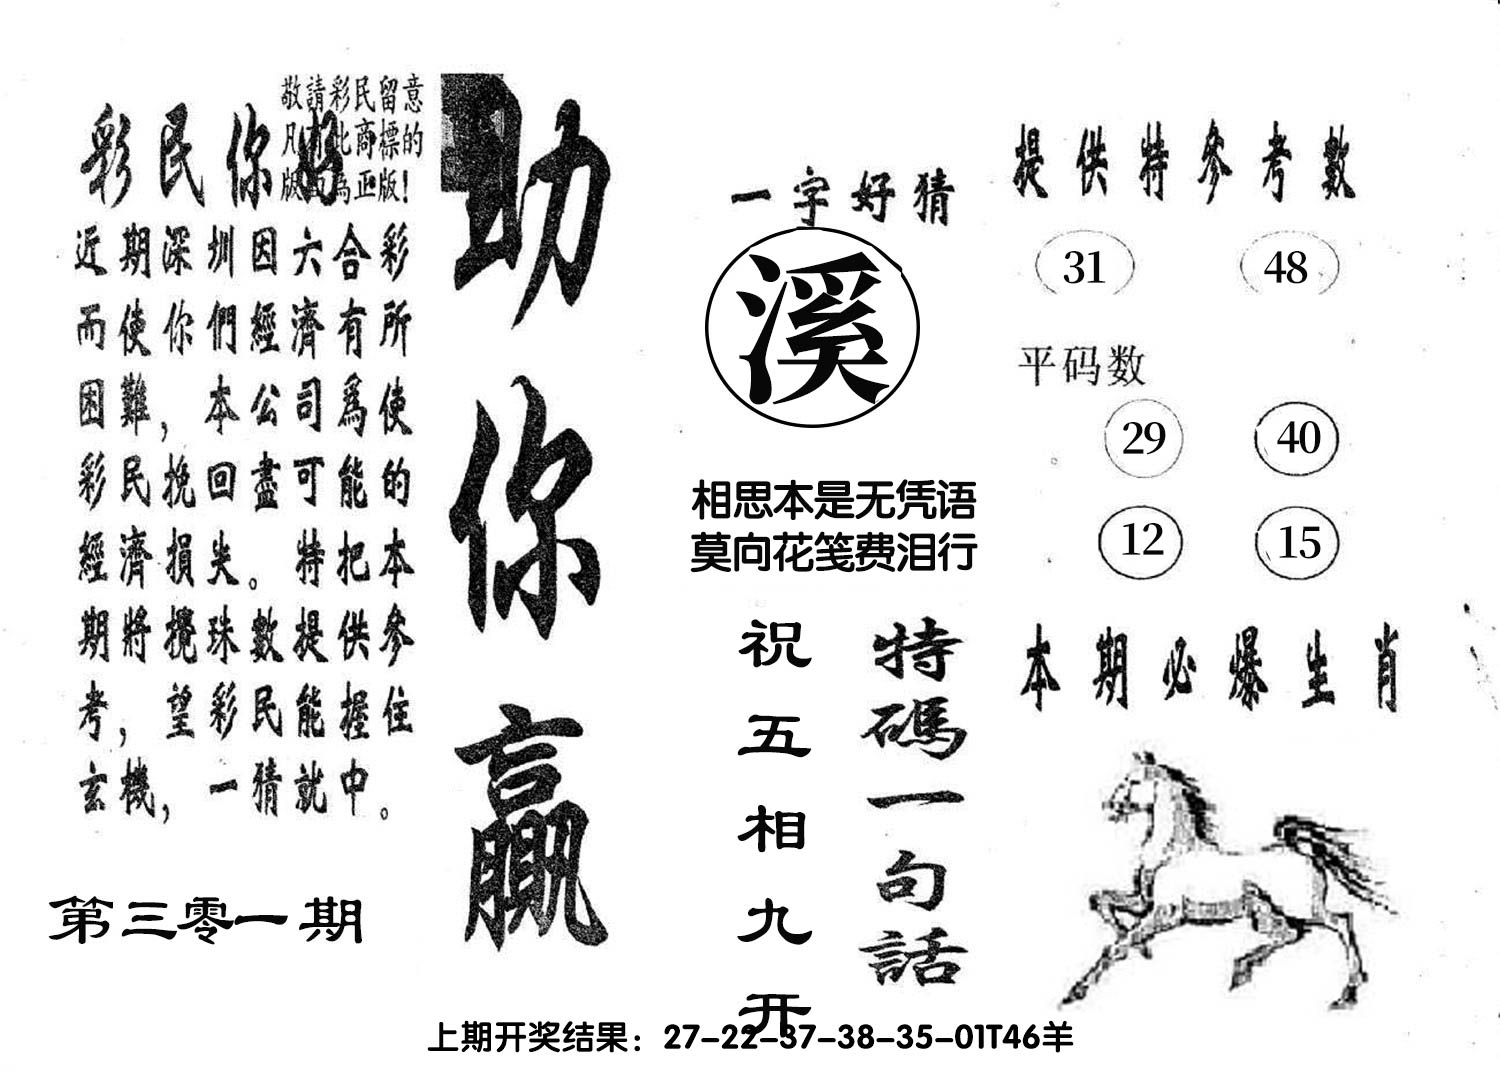 敬請彩民留意
凡有此商標的
版面為正版！
彩民你好
近期深圳因六合彩
而使你們經濟有所
困難，本公司爲使
彩民挽回盡可能的
經濟損失。特把本
期將攪珠數提供參
考，望彩民能握住
玄機，一猜就中。
第三零一期
助你贏
一字好猜
溪
相思本是无凭语
莫向花笺费泪行
特碼一句話
祝五相九开
提供特参考數
31 48
平码数
29 40
12 15
本期必爆生肖
上期开奖结果：27-22-37-38-35-01T46羊